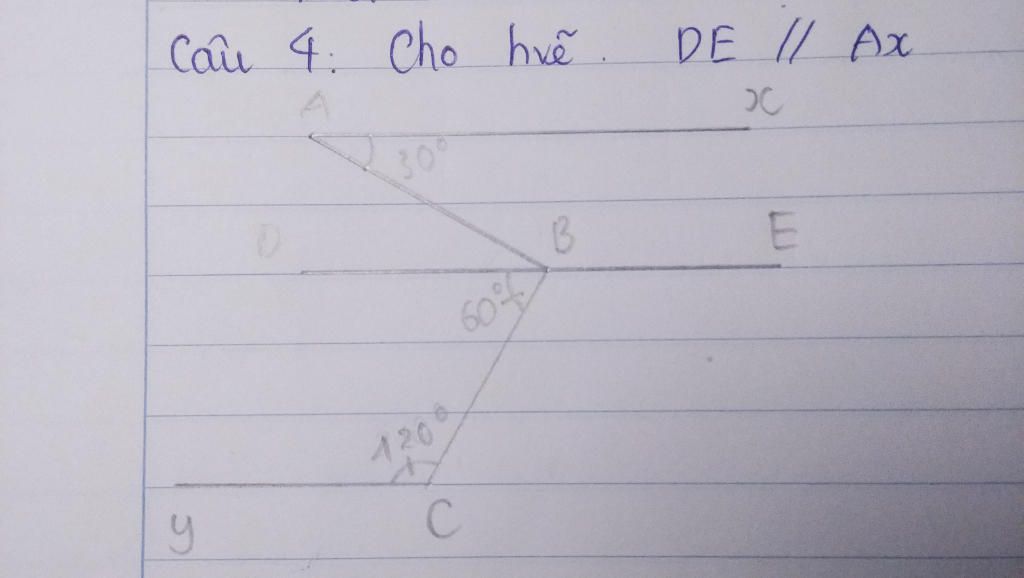 Câu 4: Cho hvẽ. DE // Ax
A
x
30°
D
B
E
60°
120°
y
C